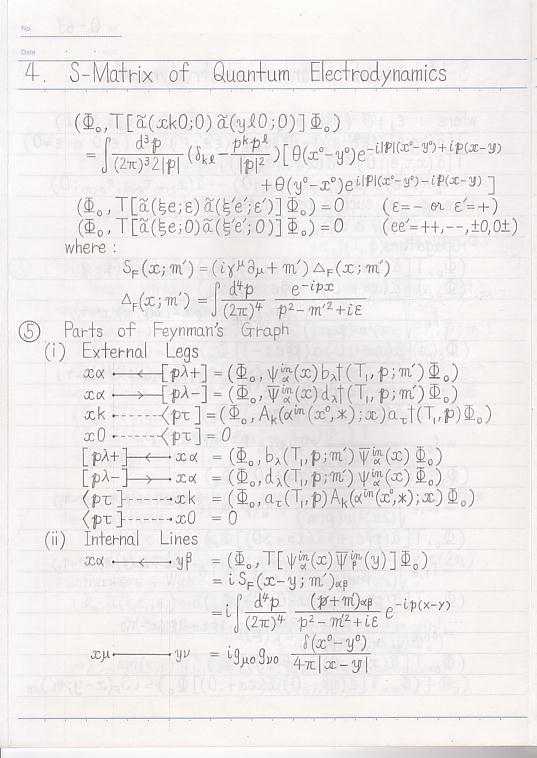 No.
Date
4. S-Matrix of Quantum Electrodynamics
(Φ₀, T[ã(xk0;0) ã(yl0;0)] Φ₀)
= ∫ d³p/((2π)³2|p|) (δₖₗ − pᵏpˡ/|p|²) [θ(x⁰−y⁰)e^{−i|p|(x⁰−y⁰)+ip(x−y)}
+θ(y⁰−x⁰)e^{i|p|(x⁰−y⁰)−ip(x−y)}]
(Φ₀, T[ã(ξe;ε) ã(ξ′e′;ε′)] Φ₀) = 0 (ε=− or ε′=+)
(Φ₀, T[ã(ξe;0) ã(ξ′e′;0)] Φ₀) = 0 (ee′=++,−−,±0,0±)
where :
S_F(x;m′) = (iγ^μ∂_μ + m′) Δ_F(x;m′)
Δ_F(x;m′) = ∫ d⁴p/(2π)⁴ e^{−ipx}/(p²−m′²+iε)
⑤ Parts of Feynman's Graph
(i) External Legs
xα •—←—[pλ+] = (Φ₀, ψ^{in}_α(x) b_λ†(T₁,p;m′) Φ₀)
xα •—→—[pλ−] = (Φ₀, ψ̄^{in}_α(x) d_λ†(T₁,p;m′) Φ₀)
xk •------⟨pτ] = (Φ₀, A_k(α^{in}(x⁰,*);x) a_τ†(T₁,p) Φ₀)
x0 •------⟨pτ] = 0
[pλ+]—←—• xα = (Φ₀, b_λ(T₁,p;m′) ψ̄^{in}_α(x) Φ₀)
[pλ−]—→—• xα = (Φ₀, d_λ(T₁,p;m′) ψ^{in}_α(x) Φ₀)
⟨pτ]------• xk = (Φ₀, a_τ(T₁,p) A_k(α^{in}(x⁰,*);x) Φ₀)
⟨pτ]------• x0 = 0
(ii) Internal Lines
xα •—←—• yβ = (Φ₀, T[ψ^{in}_α(x) ψ̄^{in}_β(y)] Φ₀)
= i S_F(x−y;m′)_{αβ}
= i ∫ d⁴p/(2π)⁴ (p̸+m′)_{αβ}/(p²−m′²+iε) e^{−ip(x−y)}
xμ •———• yν = i g_{μ0} g_{ν0} δ(x⁰−y⁰)/(4π|x−y|)